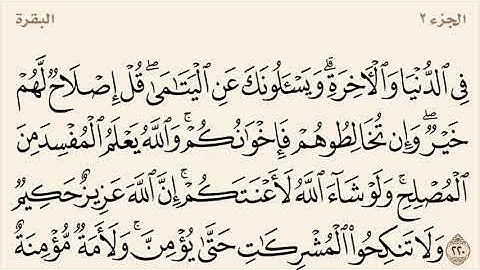 الجزء ٢ البقرة
فِي الدُّنْيَا وَالْآخِرَةِ ۗ وَيَسْـَٔلُونَكَ عَنِ الْيَتَامَىٰ ۖ قُلْ إِصْلَاحٌ لَّهُمْ
خَيْرٌ ۖ وَإِن تُخَالِطُوهُمْ فَإِخْوَانُكُمْ ۚ وَاللَّهُ يَعْلَمُ الْمُفْسِدَ مِنَ
الْمُصْلِحِ ۚ وَلَوْ شَاءَ اللَّهُ لَأَعْنَتَكُمْ ۚ إِنَّ اللَّهَ عَزِيزٌ حَكِيمٌ
٢٢٠ وَلَا تَنكِحُوا الْمُشْرِكَاتِ حَتَّىٰ يُؤْمِنَّ ۚ وَلَأَمَةٌ مُّؤْمِنَةٌ